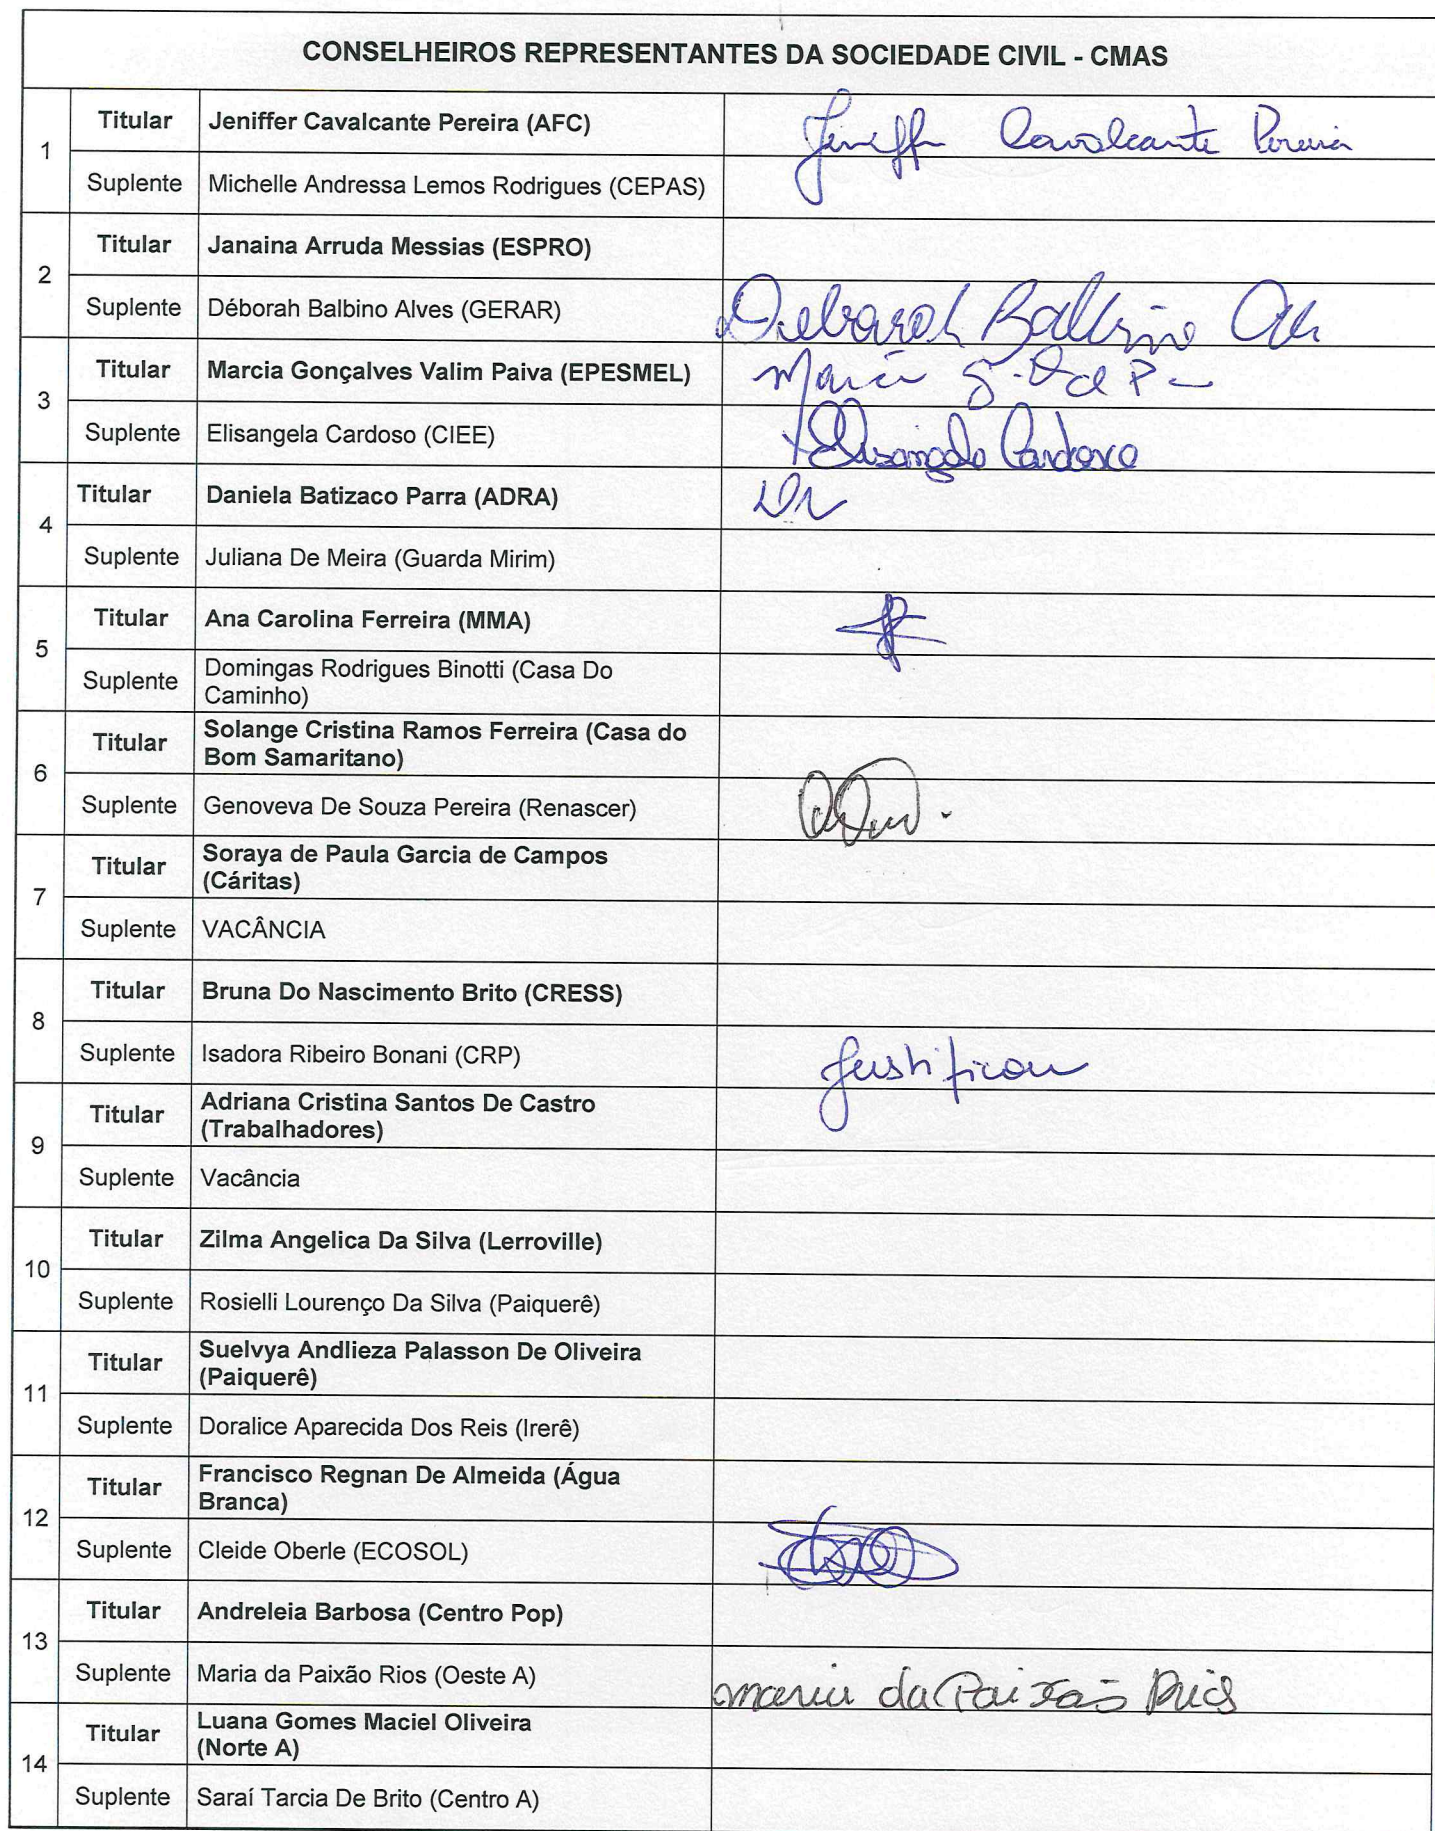 CONSELHEIROS REPRESENTANTES DA SOCIEDADE CIVIL - CMAS
1
Titular Jeniffer Cavalcante Pereira (AFC) Jeniffer Cavalcante Pereira
Suplente Michelle Andressa Lemos Rodrigues (CEPAS)
2
Titular Janaina Arruda Messias (ESPRO)
Suplente Déborah Balbino Alves (GERAR) Deborah Balbino
3
Titular Marcia Gonçalves Valim Paiva (EPESMEL) Marcia G.
Suplente Elisangela Cardoso (CIEE) Elisangela Cardoso
4
Titular Daniela Batizaco Parra (ADRA)
Suplente Juliana De Meira (Guarda Mirim)
5
Titular Ana Carolina Ferreira (MMA)
Suplente Domingas Rodrigues Binotti (Casa Do
Caminho)
6
Titular Solange Cristina Ramos Ferreira (Casa do
Bom Samaritano)
Suplente Genoveva De Souza Pereira (Renascer)
7
Titular Soraya de Paula Garcia de Campos
(Cáritas)
Suplente VACÂNCIA
8
Titular Bruna Do Nascimento Brito (CRESS)
Suplente Isadora Ribeiro Bonani (CRP) Justificou
9
Titular Adriana Cristina Santos De Castro
(Trabalhadores)
Suplente Vacância
10
Titular Zilma Angelica Da Silva (Lerroville)
Suplente Rosielli Lourenço Da Silva (Paiquerê)
11
Titular Suelvya Andlieza Palasson De Oliveira
(Paiquerê)
Suplente Doralice Aparecida Dos Reis (Irerê)
12
Titular Francisco Regnan De Almeida (Água
Branca)
Suplente Cleide Oberle (ECOSOL)
13
Titular Andreleia Barbosa (Centro Pop)
Suplente Maria da Paixão Rios (Oeste A) maria da Paixão Rios
14
Titular Luana Gomes Maciel Oliveira
(Norte A)
Suplente Saraí Tarcia De Brito (Centro A)